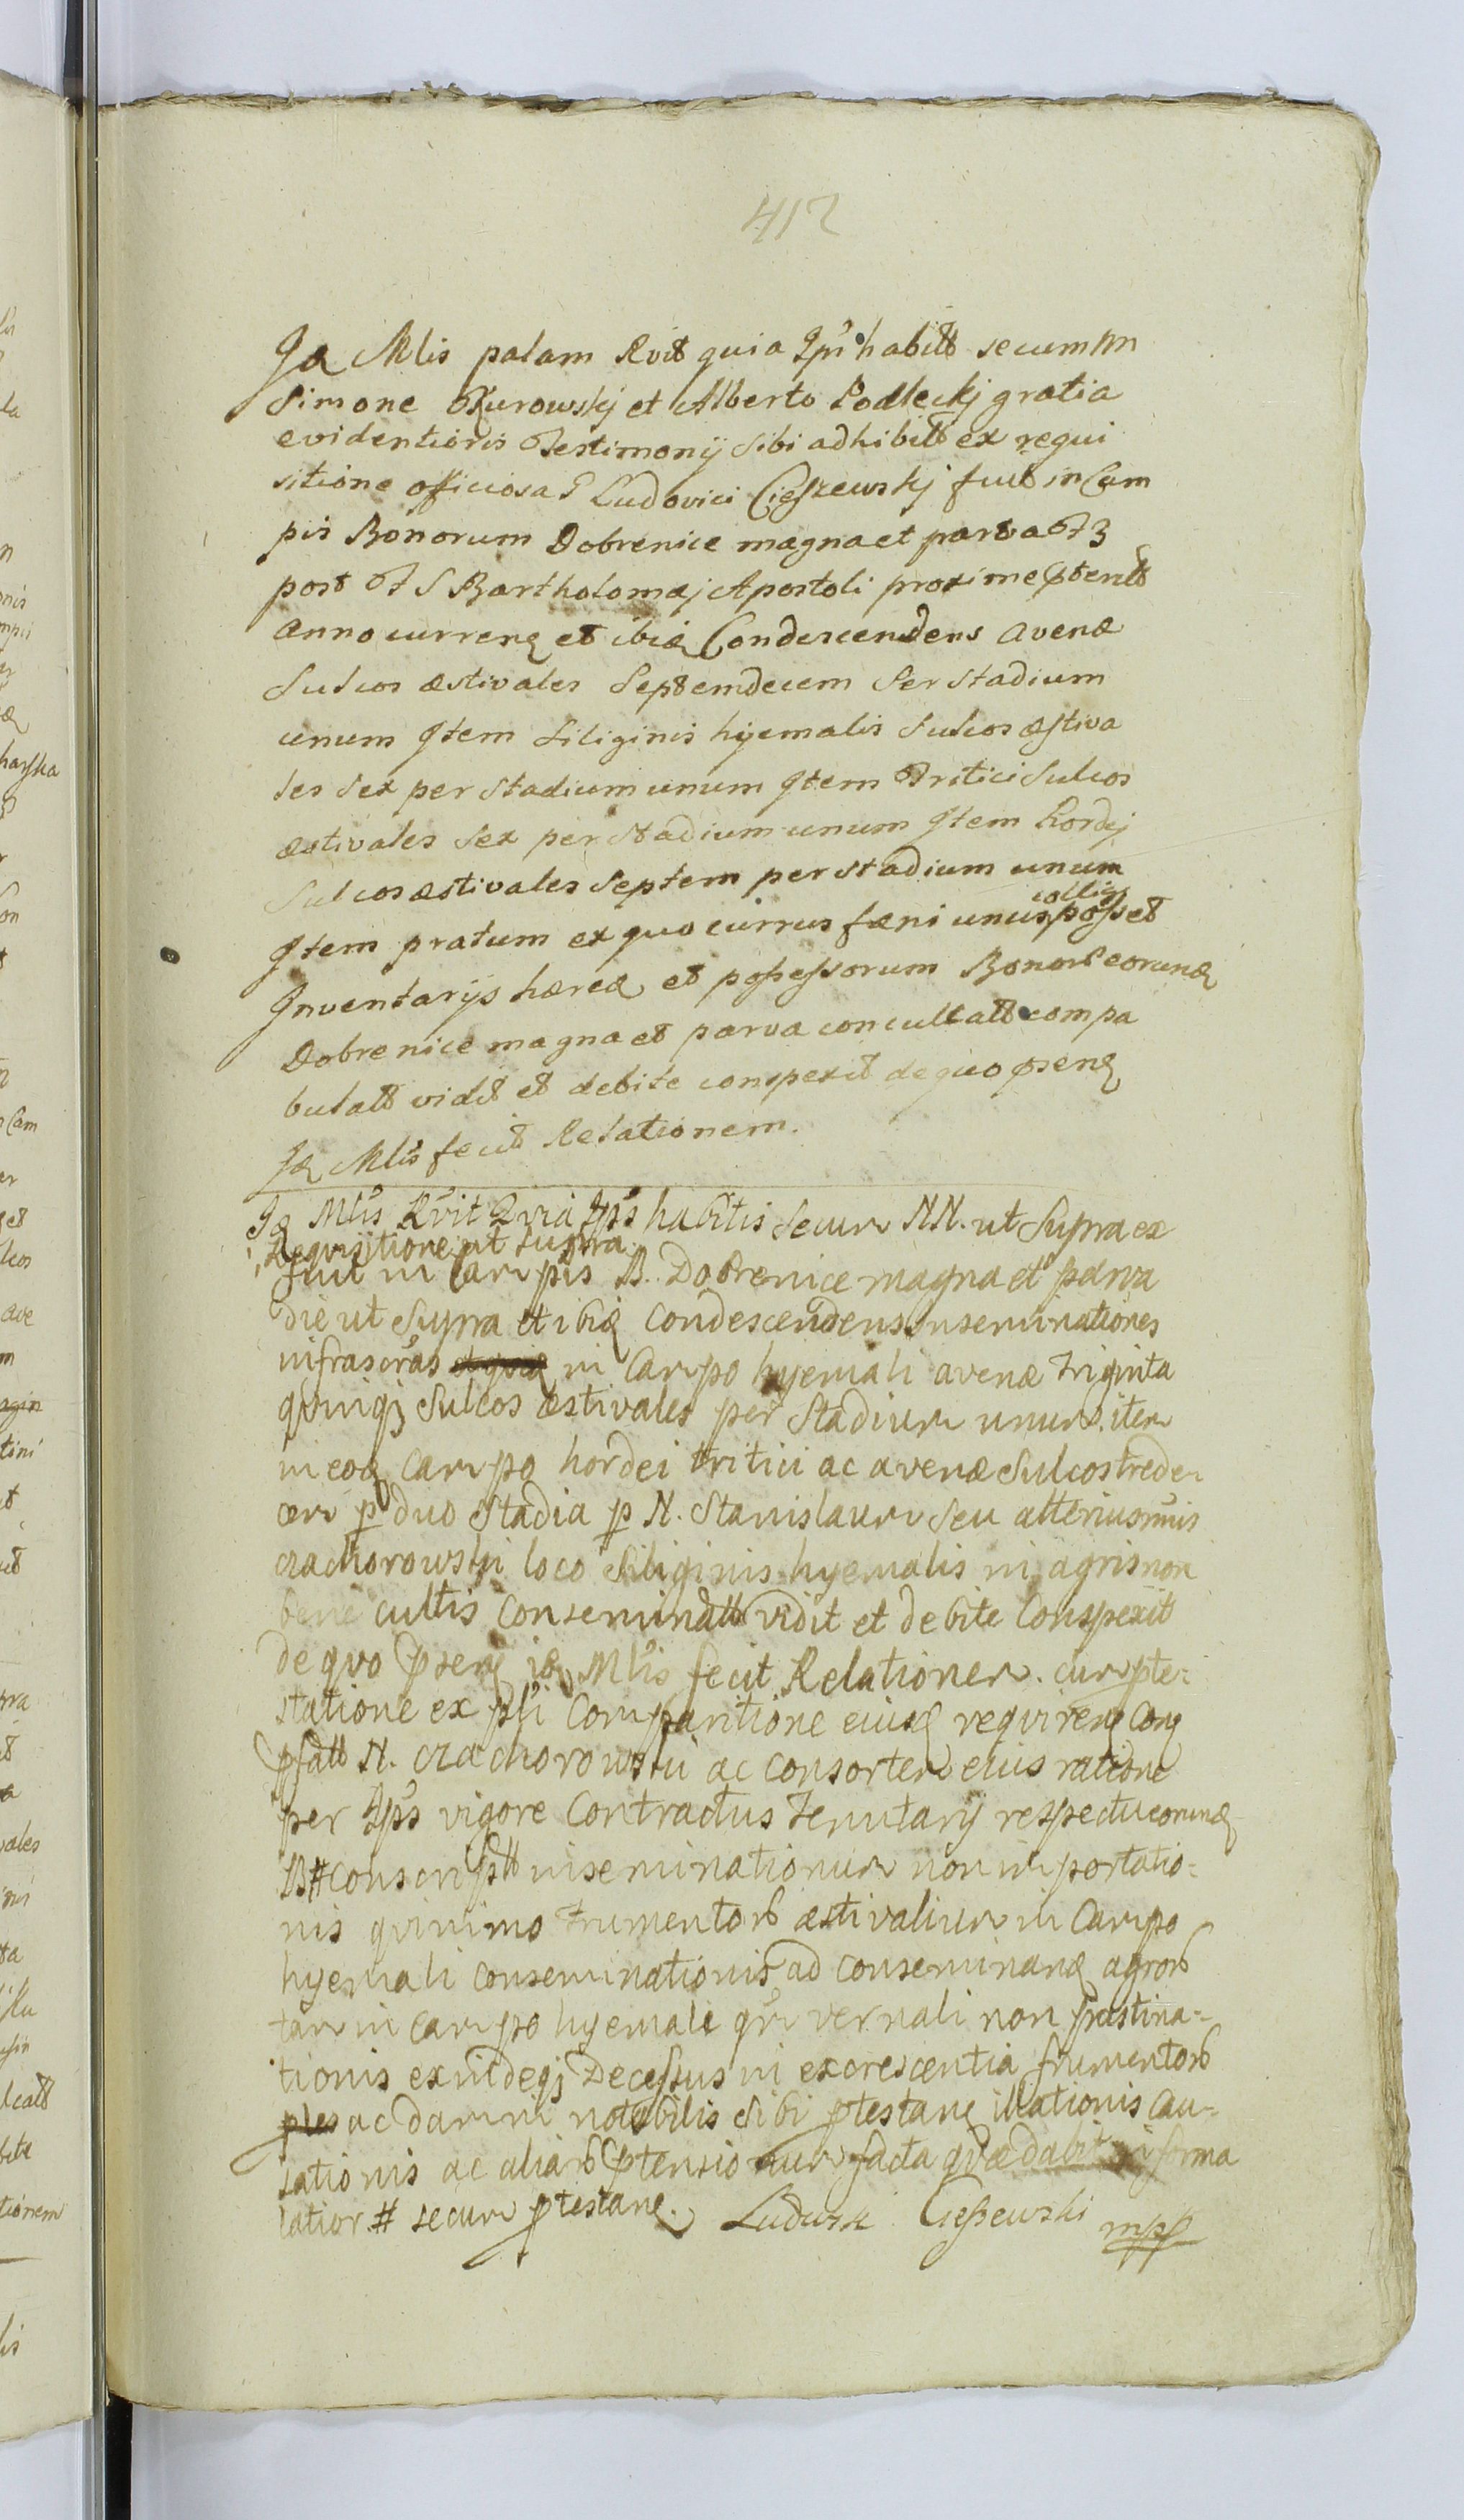 412
Ja Mlis palam Rvit quia Ips habitt secum NN
Simone Kurowskj et Alberto Podleckj gratia
evidentioris Testimonij sibi adhibitt ex requi
sitione officiosa G Ludovici Cieszewskj fuit in Cam
pis Bonorum Dobrenice magna et parva F 3
post F S Bartholomæj Apostoli proxime pterit
Anno curren et ibid Condescendens avenæ
Sulcos æstivales Septemdecem per stadium
unum Item siliginis hyemalis Sulcos æstiva
les sex per stadium unum Item Tritici Sulcos
æstivales sex per stadium unum Item hordej
Sulcos æstivales septem per stadium unum
Item pratum ex quo currus fæni unus collig posset
Inventarijs hæred et possessorum Bonor eorund
Dobrenice magna et parva conculcatt compa
bulatt vidit et debite conspexit de quo psens
Id Mlis fecit Relationem.
Id Mlis Rvit Quia Ips habitis secum NN. ut Supra ex
Requisitione ut supra
fuit in Campis B. Dobrenice magna et parva
die ut Supra et ibid condescendens inseminationes
infrascras in Campo hyemali avenæ triginta
qvinq3 Sulcos æstivales per Stadium unum. item
in eod Campo hordei tritici ac avenæ Sulcos trede-
cem p duo Stadia p N. Stanislaum seu alterius nnis
loco Siliginis hyemalis in agris non
bene cultis conseminatt vidit et debite conspexit
de quo psens id Mlis fecit Relationem. cum pte-
statione ex psti Comparitione eiusd requiren Con
pfatt N. ac consortem eius ratione
per Ips vigore Contractus tenutarij respectu eorund
B # conscriptt inseminationum non importatio-
nis qvinimo frumentor æstivalium in Campo
hyemali conseminationis ad conseminand agror
tam in campo hyemali qm vernali non præstina-
tionis exindeq3 Decessus in excrescentia frumentor
ples ac damni notabilis sibi ptestan illationis cau-
sationis ac aliar ptensionum facta qvæ dabit in forma
latiori # secum ptestan. Ludwik Cieszewski mpp